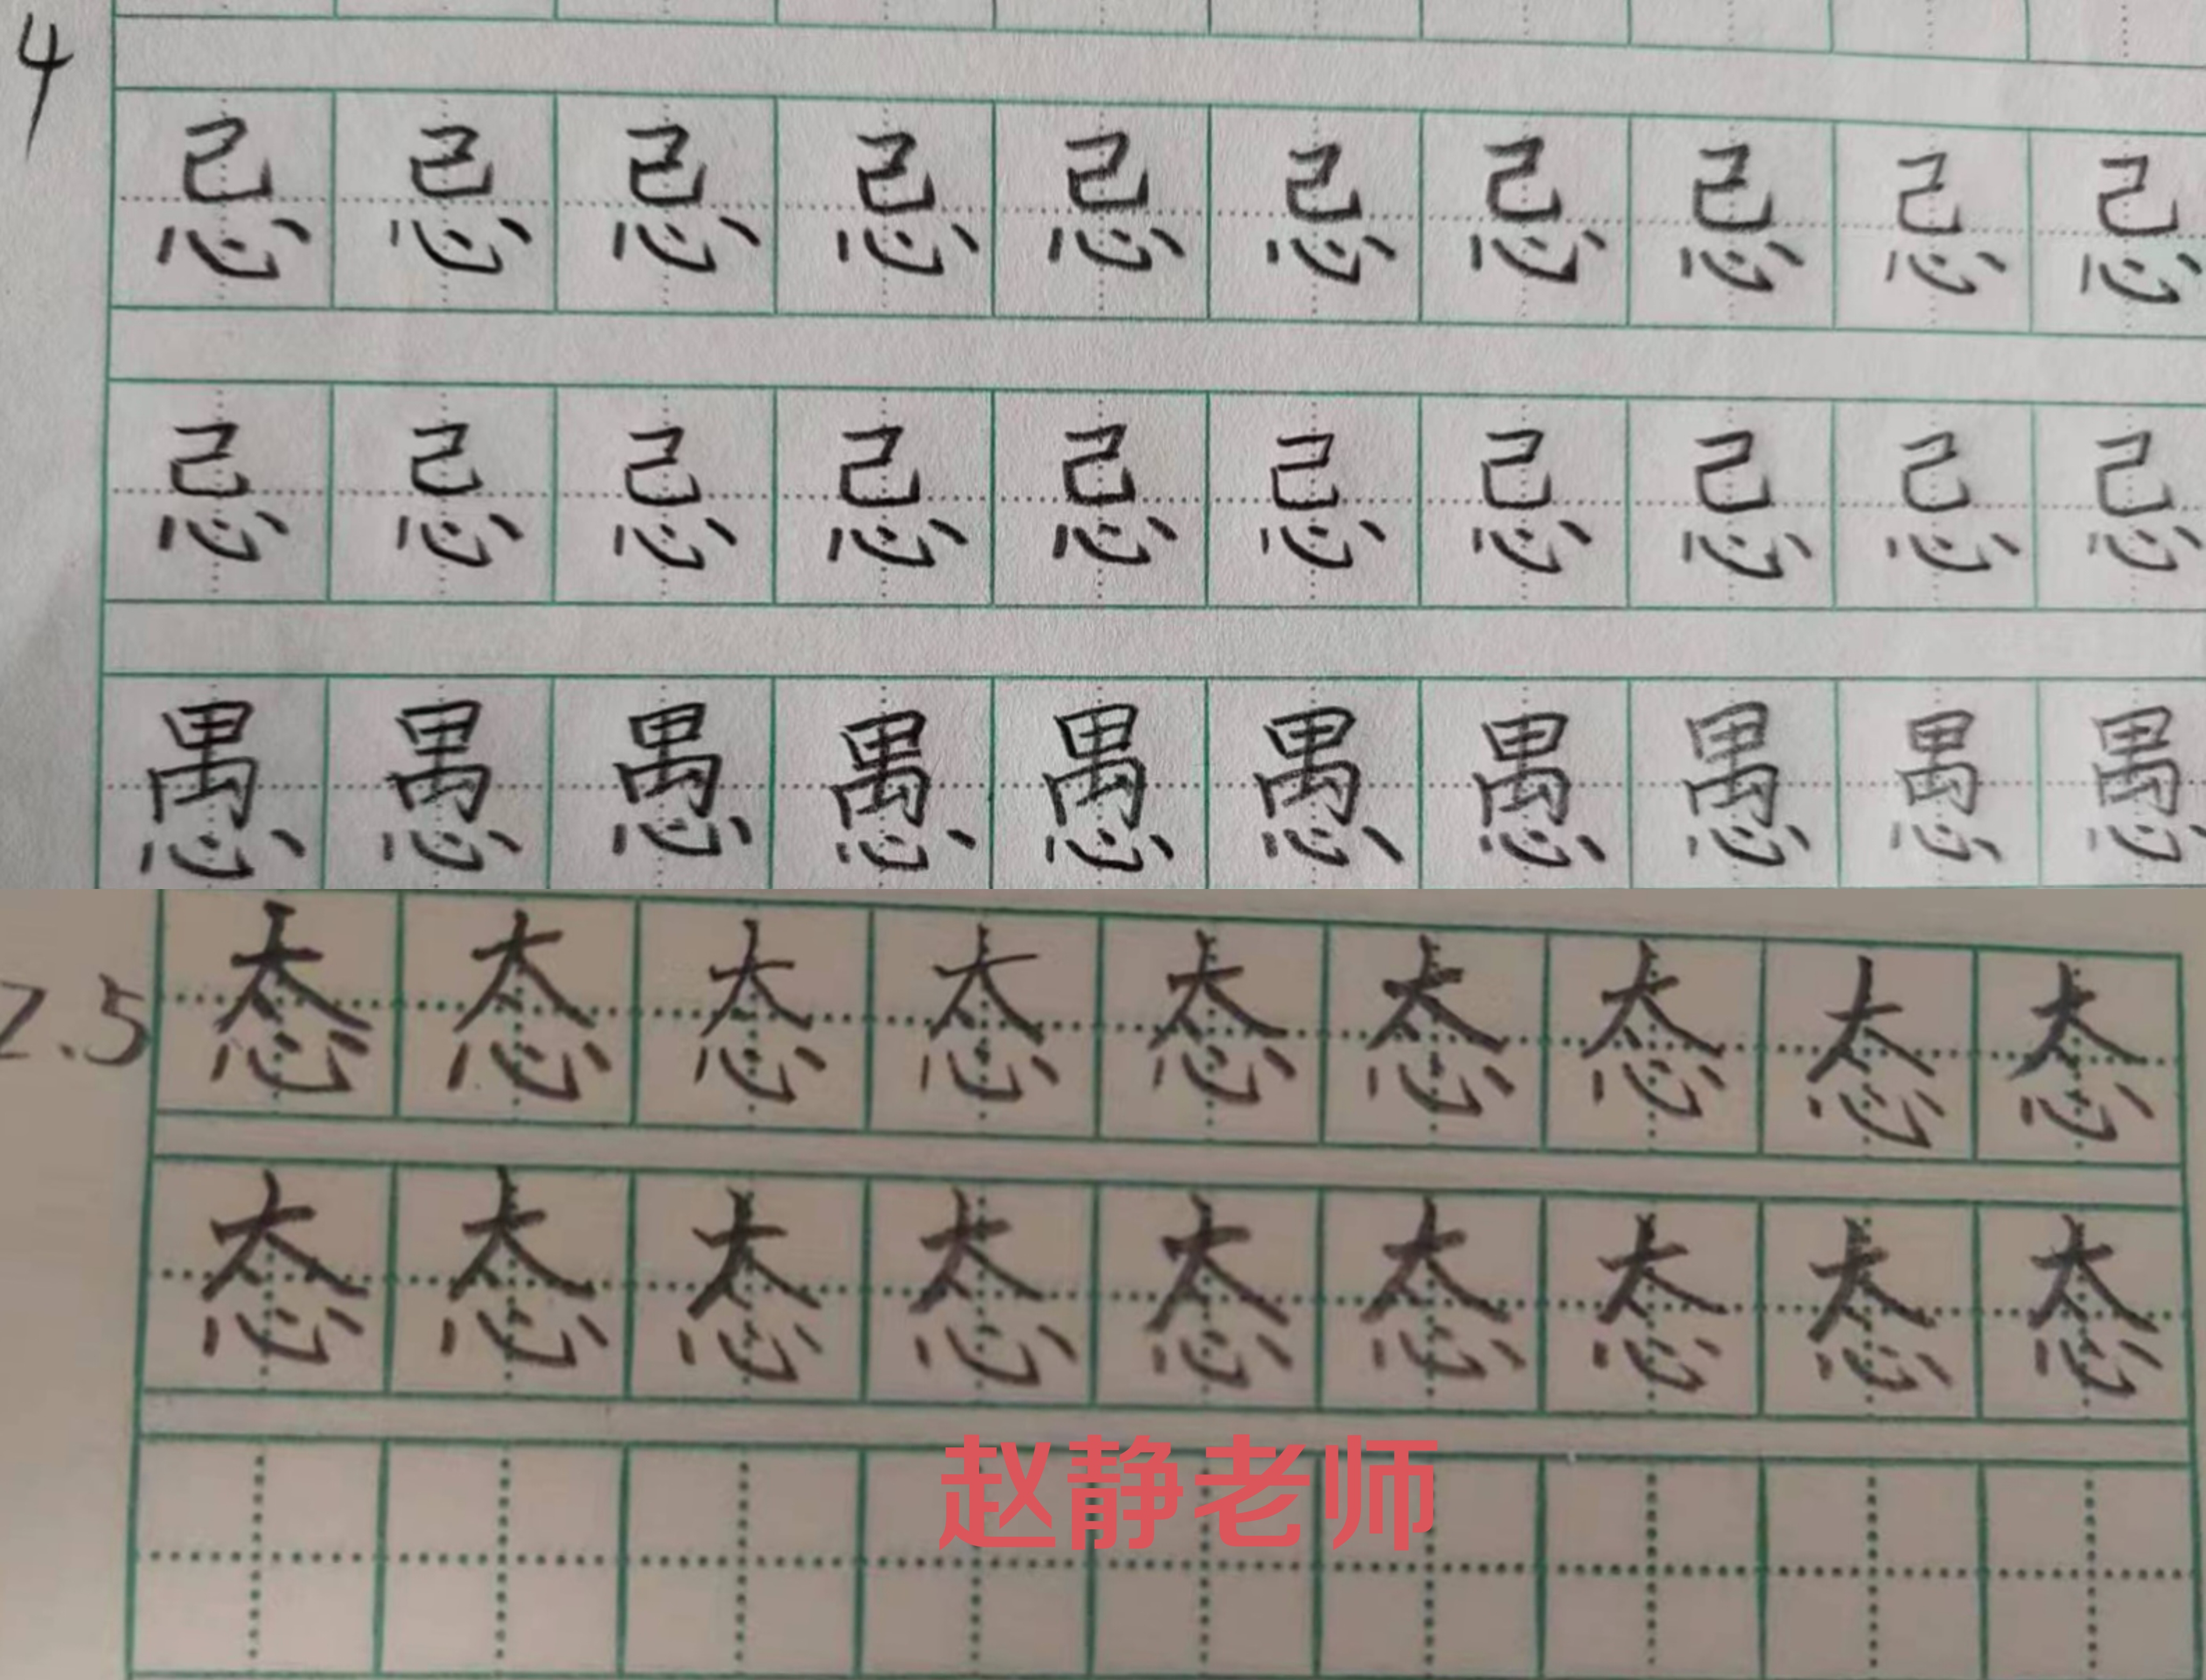 4
忌忌忌忌忌忌忌忌忌忌
忌忌忌忌忌忌忌忌忌忌
愚愚愚愚愚愚愚愚愚愚
2.5
态态态态态态态态态
态态态态态态态态态
赵静老师